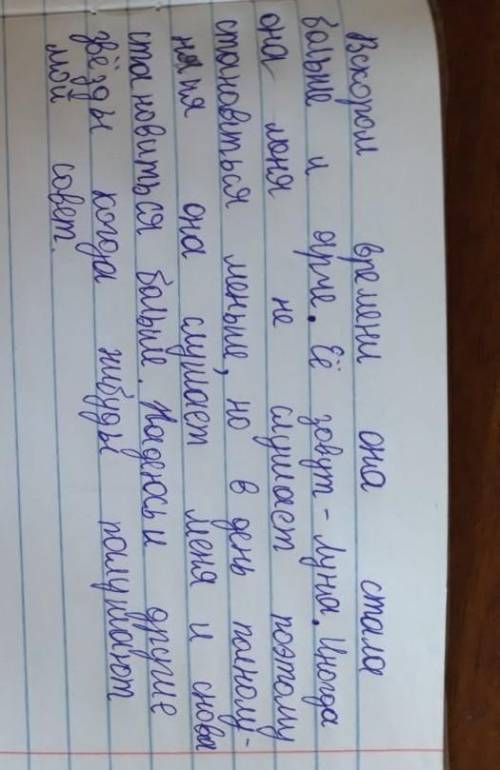 Вскором времени она стала
больше и ярче. Её зовут - Луна. Иногда
она меня не слушает поэтому
становиться меньше, но в день полному-
ния она слушает меня и снова
становиться больше. Надеюсь и другие
звёзды когда нибудь получают
мой совет.